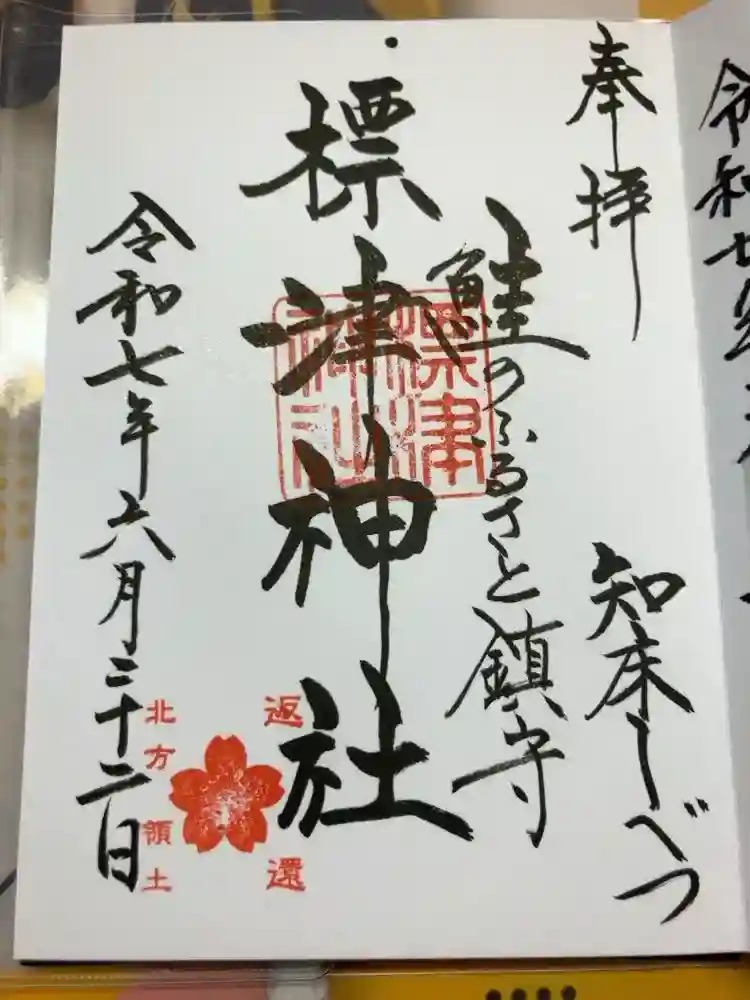 奉拝
知床しべつ
鮭のふるさと鎮守
標津神社
標津
神社
返還
北方領土
令和七年六月二十二日
令和七年